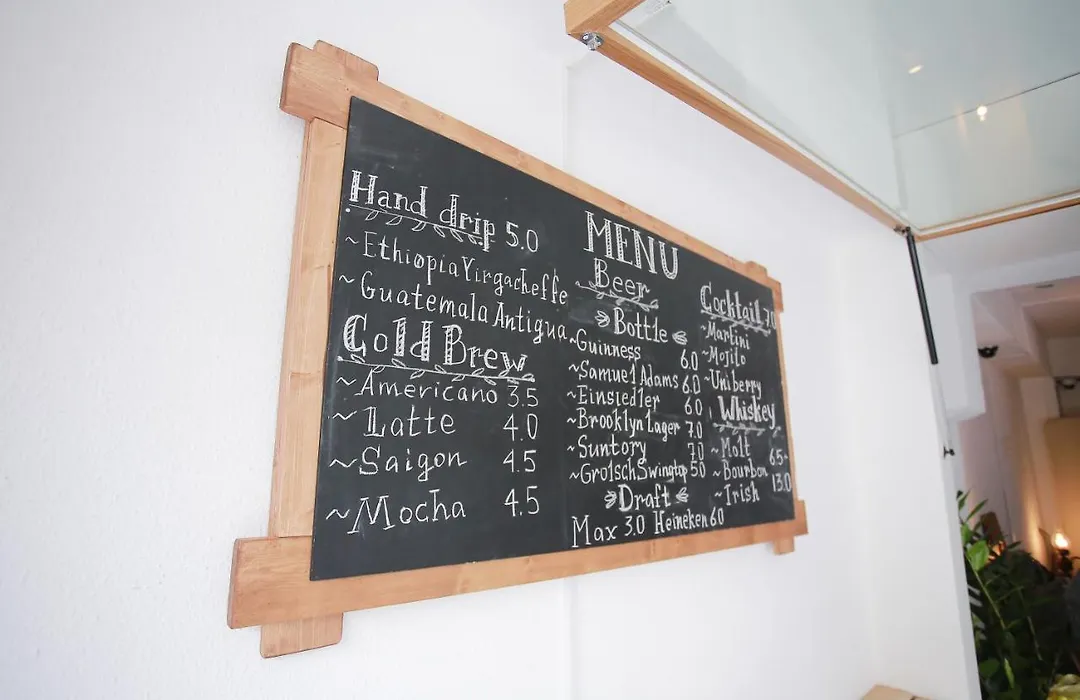 Hand drip 5.0
~Ethiopia Yirgacheffe
~Guatemala Antigua
Cold Brew
~Americano 3.5
~Latte 4.0
~Saigon 4.5
~Mocha 4.5
MENU
Beer
Bottle
~Guinness 6.0
~Samuel Adams 6.0
~Einsiedler 6.0
~Brooklyn Lager 7.0
~Suntory 7.0
~Grolsch Swingtop 5.0
Draft
Max 3.0 Heineken 6.0
Cocktail 7.0
~Martini
~Mojito
~Uniberry
Whiskey
~Molt 6.5~
~Bourbon 13.0
~Irish